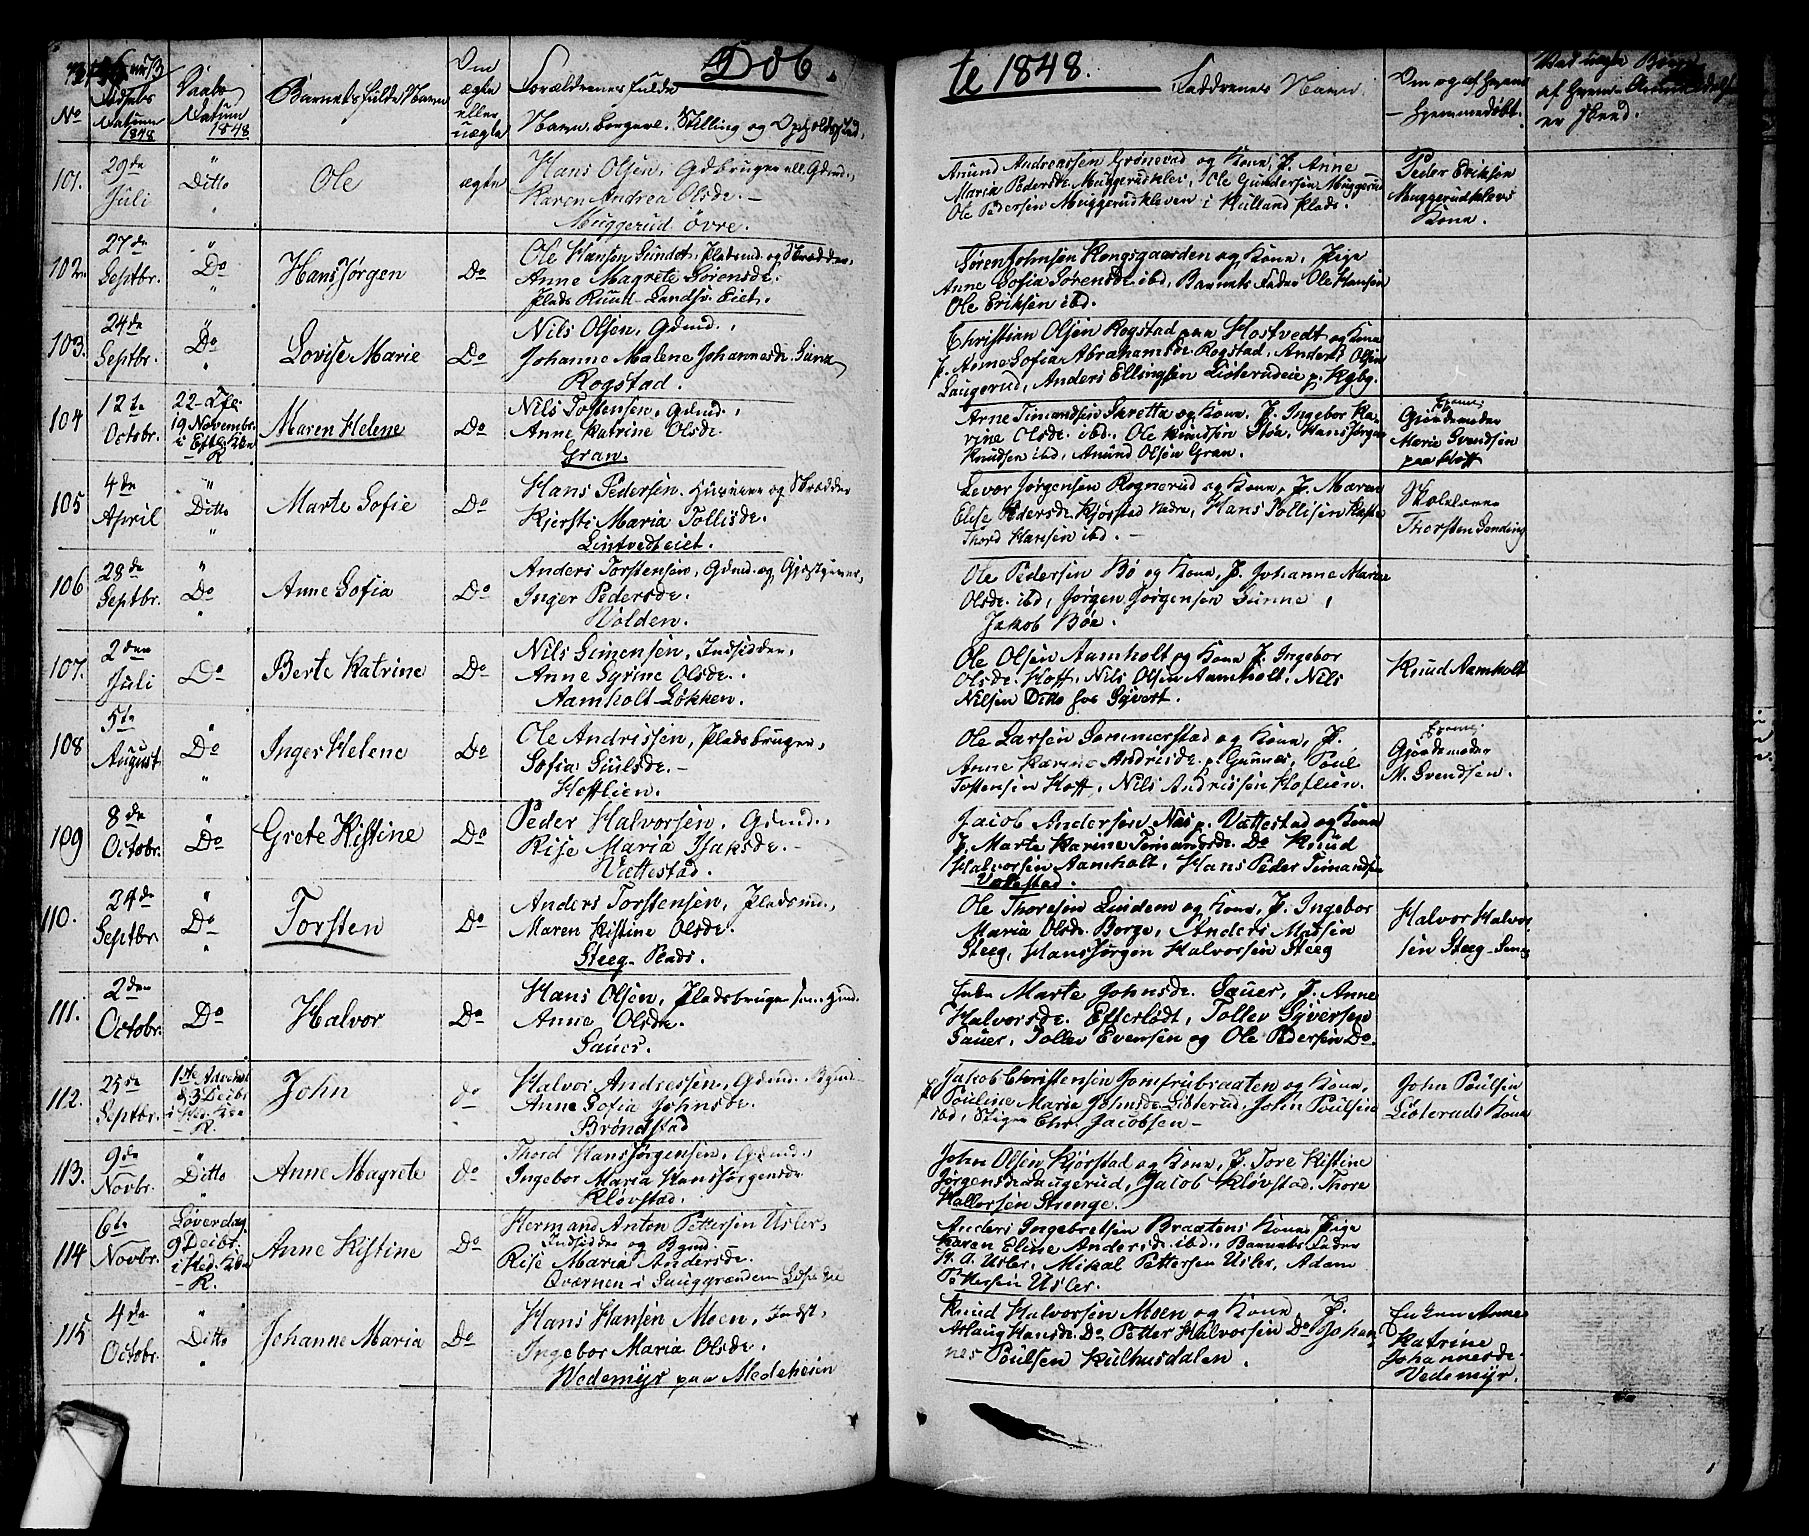 Døb-
te 1848.
No
Fødsels
Datum
1848
Daabs
Datum
1848
Barnets fulde Navn
Om
ægte
eller
uægte
Forældrenes fulde
Navn, Borgerl. Stilling og Opholdssted,
Faddrenes Navn
Om og af hvem
hjemmedøbt.
101.
29de
Juli
Ditto
Ole
ægte
Hans Olsen,
Karen Andrea Olsdr. -
Muggerud øvre.
Amund Andreassen Grønevad og Kone, P. Anne
Maria Pedersdr. Muggerudklev, Ole Gundersen Muggerud
Ole Pedersen Muggerudkleven i Hulland Plads.
Peder Eriksen
Muggerudklevs
Kone.
102.
27de
Septbr.
Do
Hans Jørgen
Do
Ole Hansen Sundet, Pladsmd. og Skrædder,
Anne Magrete Sørensdr.
Plads Landsv. Eiet.
Søren Johnsen Kongsgaarden og Kone, Pige
Anne Sofia Sørensdr. ibd, Barnets Fader Ole Hansen
Ole Eriksen ibd.
103.
24de
Septbr.
Do
Lovise Marie
Do
Nils Olsen, Gdmd.,
Johanne Malene Johannesdr.
Rogstad.
Christian Olsen Rogstad paa Hostvedt og Kone
P. Anne Sofia Abrahamsdr. Rogstad, Anders Olsen
Saugerud, Anders Ellingsen Listerudeie p. Kgbg.
104
12te
Octobr.
19 Novembr.
Maren Helene
Do
Nils Tostensen, Gdmd.,
Anne Katrine Olsdr.
Gran.
Arne Timandsen Skretta og Kone, P. Ingebor Ka-
rine Olsdr. ibd. Ole Knudsen Støa, Hans Jørgen
Knudsen ibd, Amund Olsen Gran.
Gjordemoder
Marie Svendsen
paa Hoff
105
4de
April
Ditto
Marte Sofie
Do
Hans Pedersen, og Skrædder
Kjersti Maria Tollisdr.
Lintvedteiet.
Levor Jørgensen Rognerud og Kone, P. Maren
Elise Pedersdr. Kjørstad Nedre, Hans Tollisen
Thord Hansen ibd. -
Skolelærer
Thorsten Landing
106
28de
Septbr.
Do
Anne Sofia
Do
Anders Torstensen, Gdmd. og Gjæstgiver,
Inger Pedersdr.
Volden.
Ole Pedersen Bø og Kone, P. Johanne Marie
Olsdr. ibd, Jørgen Jørgensen Sunne,
Jakob Bøe.
107.
2den
Juli
Do
Berte Katrine
Do
Nils Simensen, Indsidder,
Anne Syrine Olsdr.
Aamholt-Løkken.
Ole Olsen Aamholt og Kone P. Ingebor
Olsdr. Hoff, Nils Olsen Aamholt, Nils
Nilsen Ditto hos Syvert.
Knud Aamholt
108
5te
August
Do
Inger Helene
Do
Ole Andrissen, Pladsbruger,
Sofia Giulsdr. -
Hofflien.
Ole Larsen Sommerstad og Kone, P.
Anne Karine Andrisdr. p. Gunnes, Poul
Tostensen Hoff, Nils Andrissen Hoflien.
Gjordemoder
M. Svendsen.
109
8de
Octobr.
Do
Grete Kistine
Do
Peder Halvorsen, Gdmd.,
Rise Maria Isaksdr. -
Vættestad.
Jacob Andersen Næs p. Vættestad og Kone
P. Marte Karine Timandsdr. Do Knud
Halvorsen Aamholt, Hans Peder Timandsen
Vættestad.
110.
24de
Septbr.
Do
Torsten
Do
Anders Torstensen, Pladsmd.,
Maren Kistine Olsdr.
Steeg-Plads.
Ole Thoresen Lindem og Kone, P. Ingebor
Maria Olsdr. Berge, Anders Matsen
Steeg, Hans Jørgen Halvorsen Steeg
Halvor Halvor
sen Steeg
111.
2den
Octobr.
Do
Halvor
Do
Hans Olsen, Pladsbruger
Anne Olsdr.
Sauer.
Enke Marte Johnsdr. Sauer, P. Anne
Halvorsdr. Efterlødt, Tollev Syversen
Sauer, Tollev Evensen og Ole Pedersen Do.
112.
25de
Septbr.
1ste Advent
3 Decbr.
John
do
Halvor Andressen, Gdmd.
Anne Sofia Johnsdr.
Brøndstad
Jakob Christensen Jomfrubraaten og Kone,
P. Pouline Marie Johnsdr. Listerud, John Poulsen
ibd, Stiger Chr. Jacobsen -
John Poulsen
Listeruds Kone
113.
9de
Novbr.
Ditto
Anne Magrete
do
Thord Hans Jørgensen, Gdmd.
Ingebor Maria Hans Jørgensdr
Kløvstad.
John Olsen Kjørstad og Kone, P. Tore Kistine
Jørgensdr. Saugerud, Jacob Kløvstad, Thore
Hallvorsen Strenge.
114
6te
Novbr.
Løverdag
9 Decbr.
i Hed. Kirke
R.
Anne Kistine
Do
Hermand Anton Pettersen Usler,
Indsidder og
Rise Maria Andersdr.
Qværnen i Sauggrenden
Anders Ingebretsen Braatens Kone, Pige
Karen Eline Andersdr. ibd, Barnets Fader
H. A. Usler, Mikal Pettersen Usler, Adam
Pettersen Usler.
115
4de
Octobr.
Ditto
Johanne Maria
Do
Hans Hansen Moen, Indst.,
Ingebor Maria Olsdr.
Vedemyr paa Medeheien
Knud Halvorsen Moen og Kone, P.
Aslaug Hansdr. Do Petter Halvorsen Do Johan
nes Poulsen Kulhusdalen.
Enken Anne
Katrine
Johannesdr.
Vedemyr.